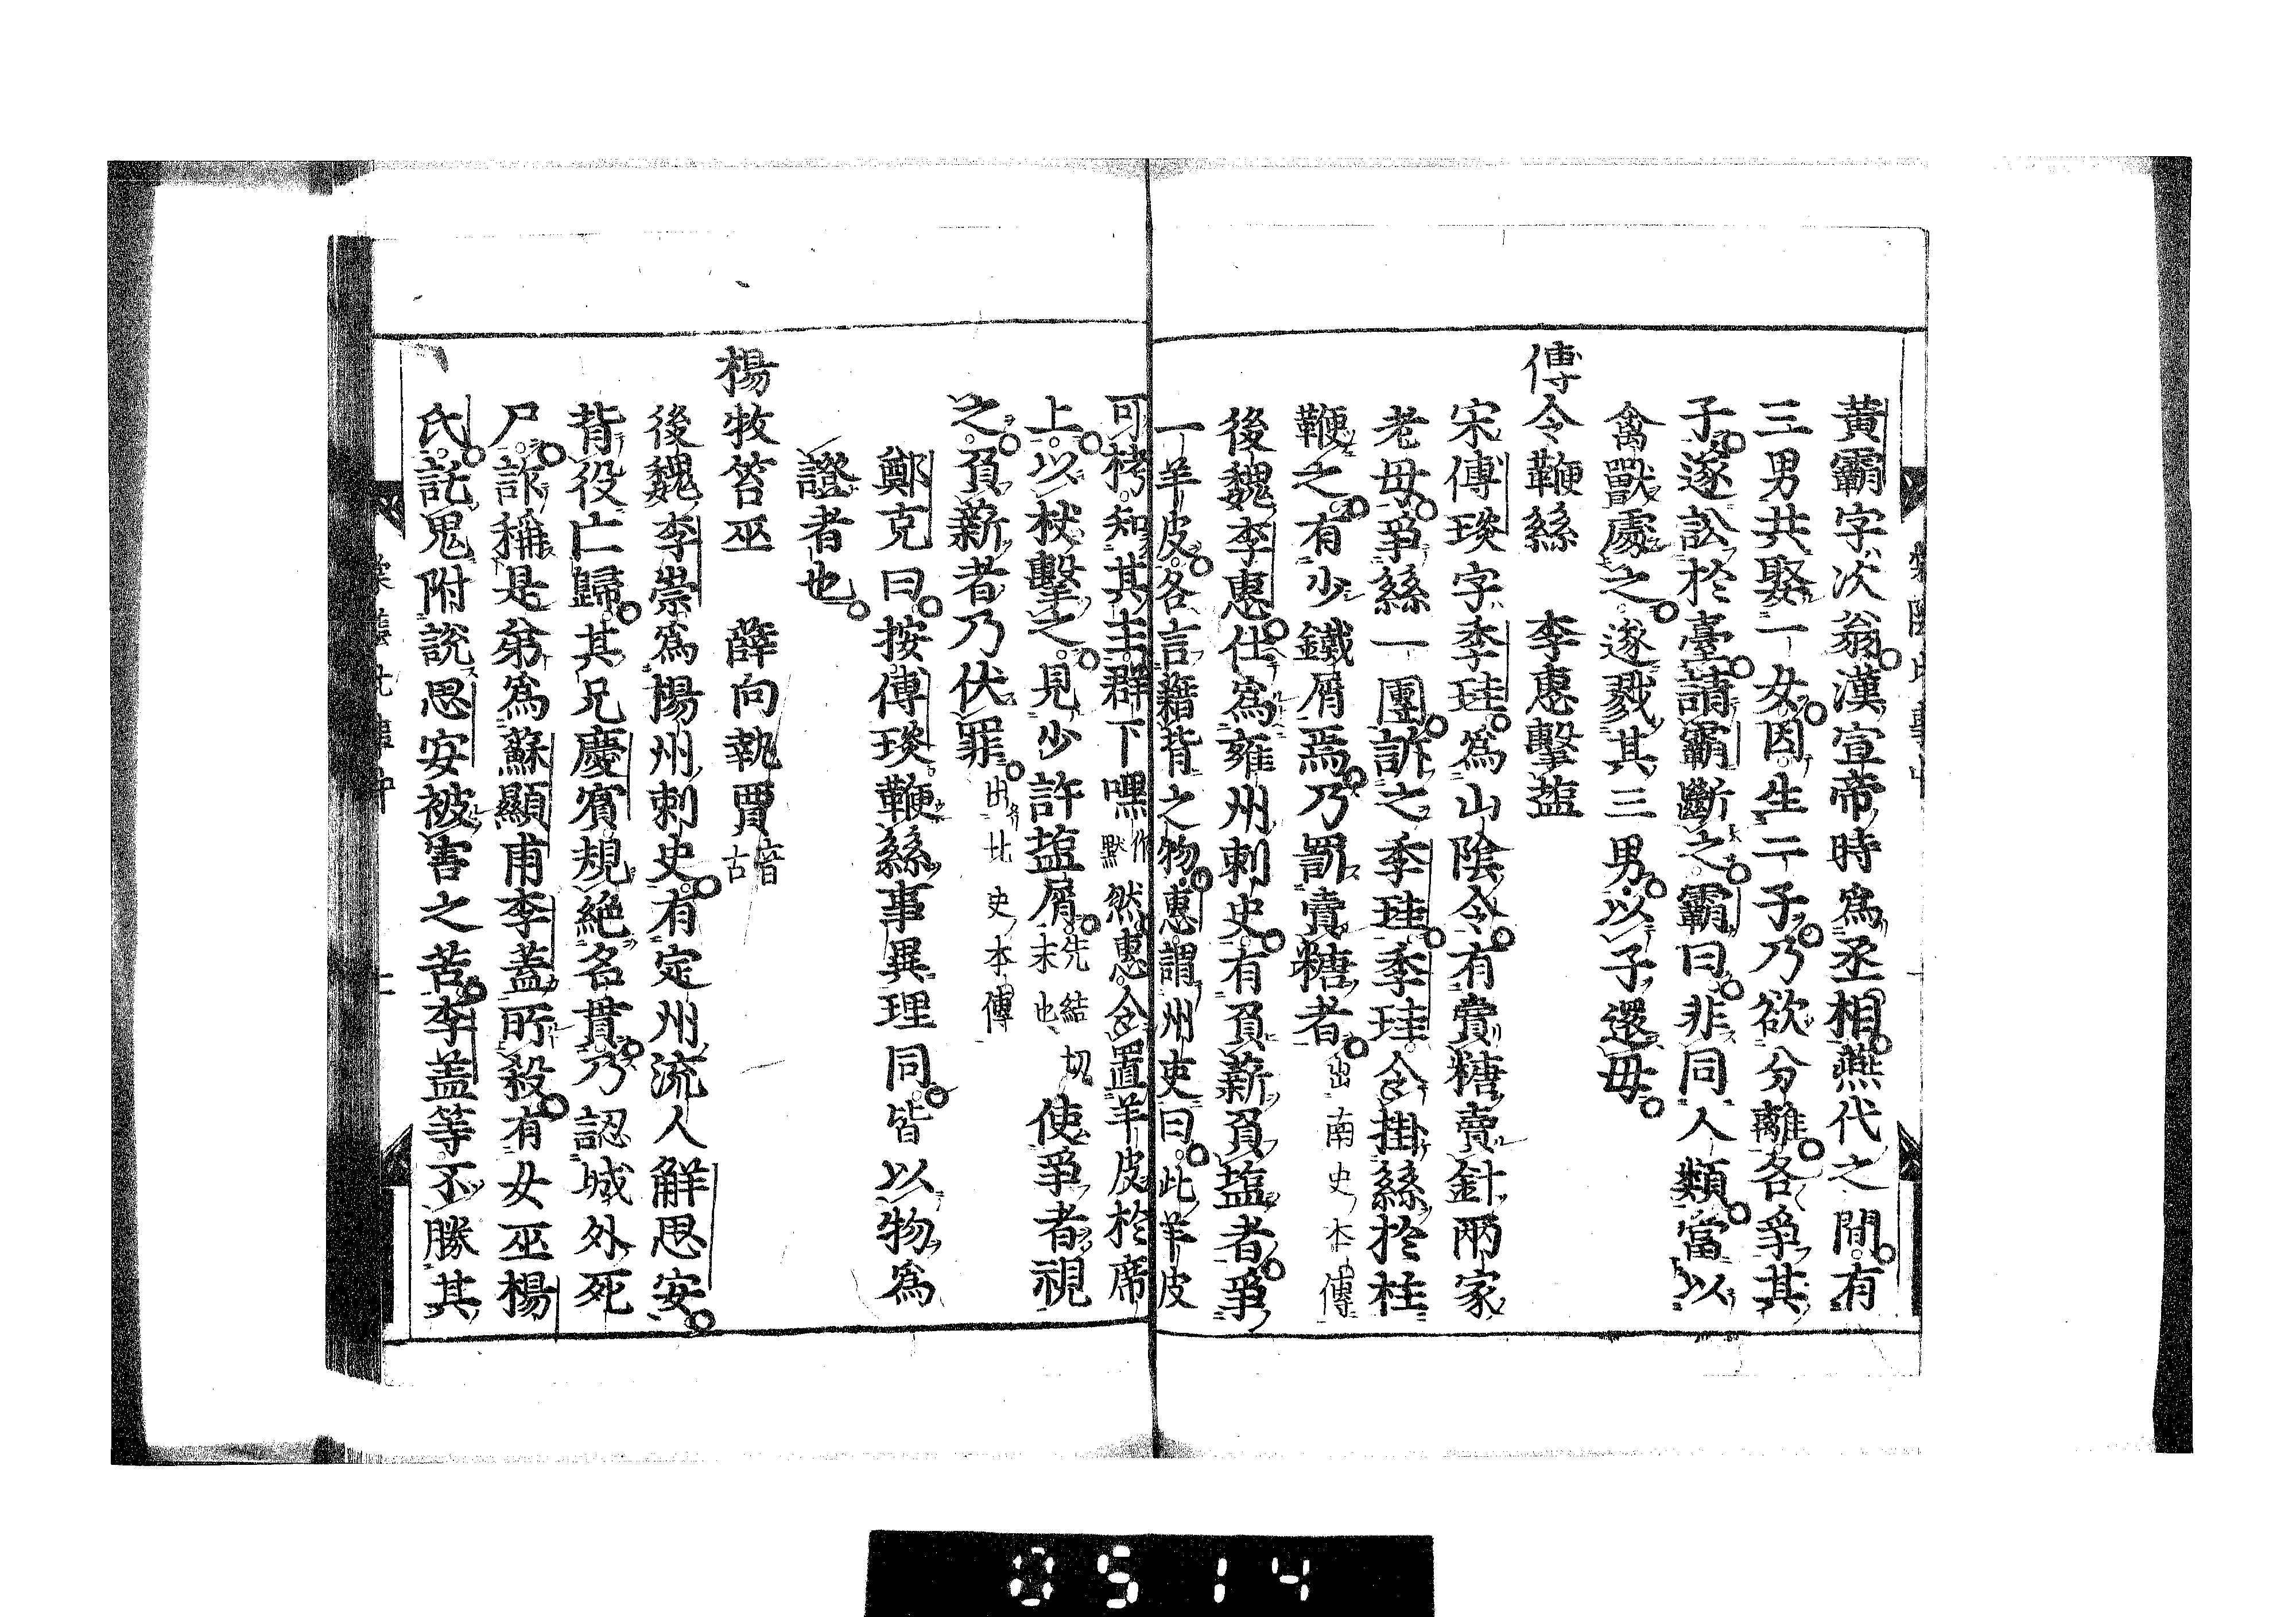 黃霸字次翁漢宣帝時爲丞相燕代之間有
三男共娶一女因生二子乃欲分離各爭其
子遂訟於臺請霸斷之霸曰非同人類當以
禽獸處之遂戮其三男以子還毋
傳令鞭絲　李惠擊塩
宋傅琰字季珪爲山陰令有賣糖賣針兩家
老毋爭絲一團訴之季珪季珪令掛絲於柱
鞭之有少鐵屑焉乃罰賣糖者出南史本傳
後魏李惠仕爲雍州刺史有負薪負塩者爭
一羊皮各言藉背之物惠謂州吏曰此羊皮
可栲知其主群下嘿作默然惠令置羊皮於席
上以杖擊之見少許塩屑先結切末也使爭者視
之負薪者乃伏罪出北史本傳
鄭克曰按傅琰鞭絲事異理同皆以物爲
證者也
楊牧笞巫　薛向執賈音古
後魏李崇爲楊州刺史有定州流人解思安
背役亡歸其兄慶賓規絕名貫乃認城外死
尸詐稱是弟爲蘇顯甫李蓋所殺有女巫楊
氏託鬼附說思安被害之苦李盖等不勝其
0514